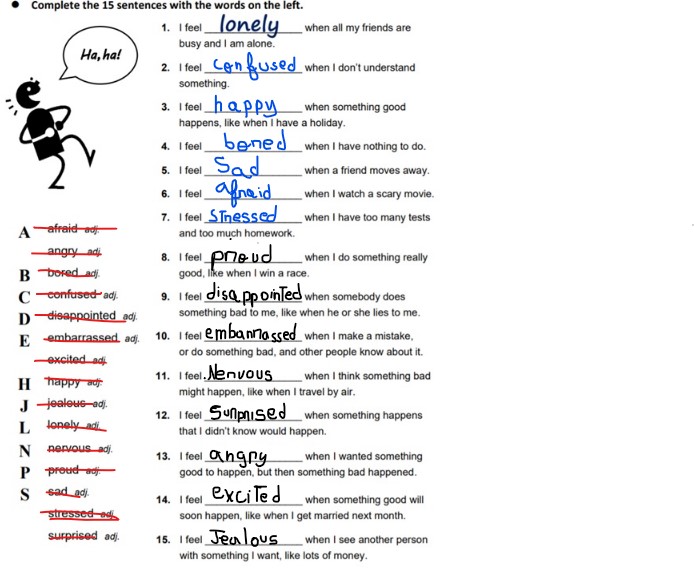 • Complete the 15 sentences with the words on the left.
Ha, ha!
A afraid adj.
angry adj.
B bored adj.
C confused adj.
D disappointed adj.
E embarrassed adj.
excited adj.
H happy adj.
J jealous adj.
L lonely adj.
N nervous adj.
P proud adj.
S sad adj.
stressed adj.
surprised adj.
1. I feel lonely when all my friends are
busy and I am alone.
2. I feel confused when I don't understand
something.
3. I feel happy when something good
happens, like when I have a holiday.
4. I feel bored when I have nothing to do.
5. I feel Sad when a friend moves away.
6. I feel afraid when I watch a scary movie.
7. I feel stressed when I have too many tests
and too much homework.
8. I feel proud when I do something really
good, like when I win a race.
9. I feel disappointed when somebody does
something bad to me, like when he or she lies to me.
10. I feel embarrassed when I make a mistake,
or do something bad, and other people know about it.
11. I feel Nervous when I think something bad
might happen, like when I travel by air.
12. I feel Surprised when something happens
that I didn't know would happen.
13. I feel angry when I wanted something
good to happen, but then something bad happened.
14. I feel excited when something good will
soon happen, like when I get married next month.
15. I feel Jealous when I see another person
with something I want, like lots of money.